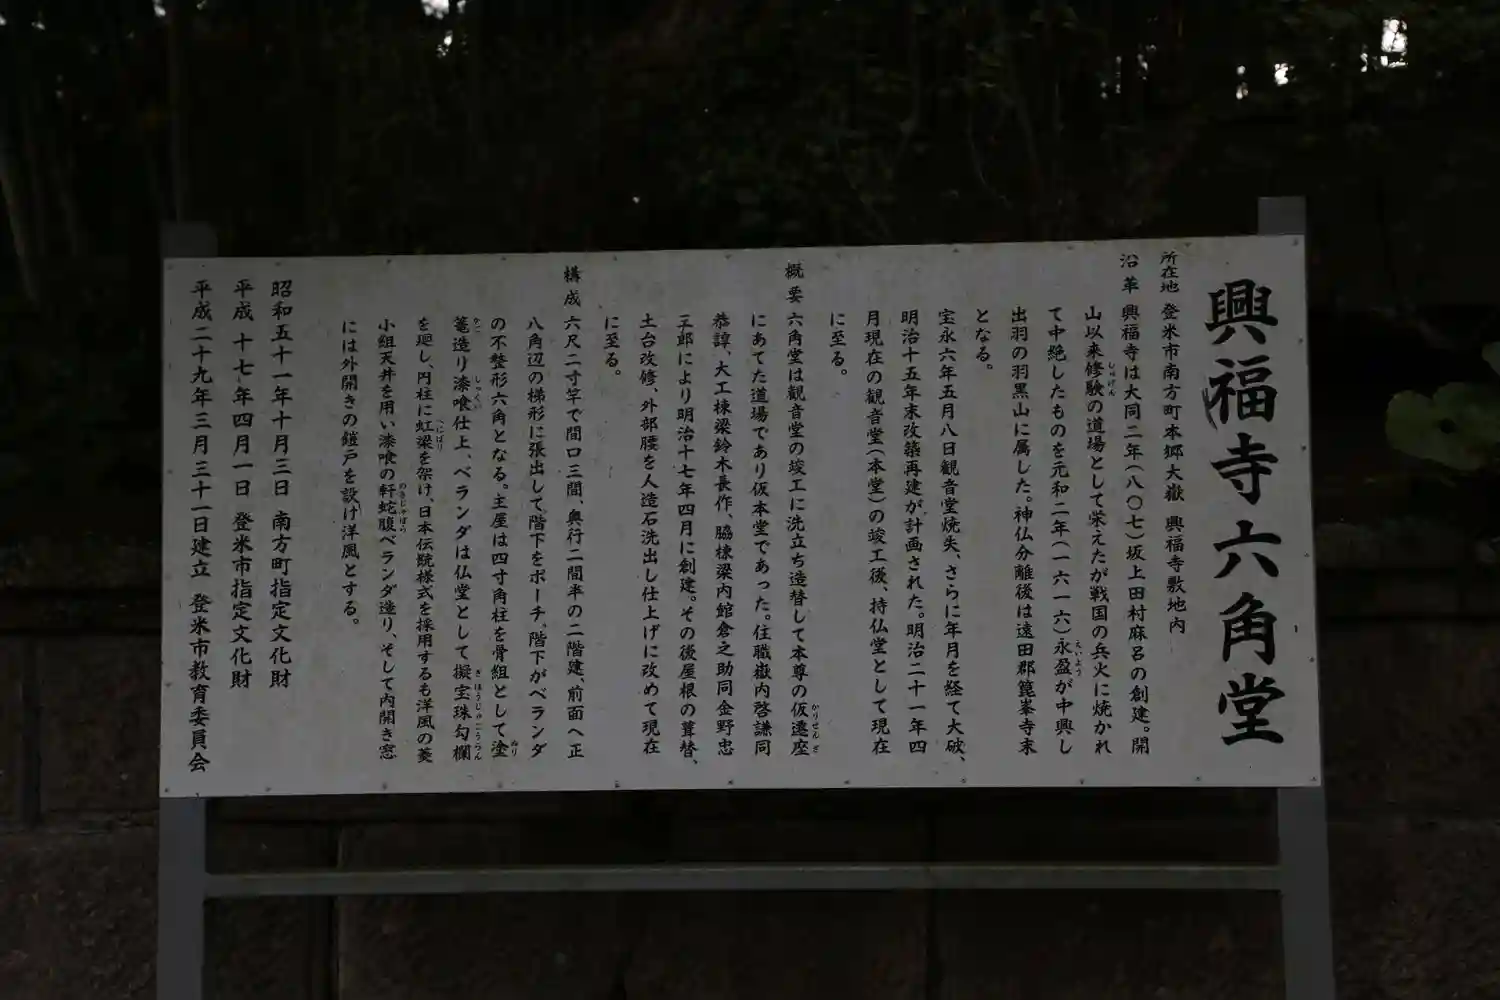 興福寺六角堂
所在地 登米市南方町本郷大嶽 興福寺敷地内
沿革 興福寺は大同二年(八〇七)坂上田村麻呂の創建。開
山以来修験の道場として栄えたが戦国の兵火に焼かれ
しゅげん
て中絶したものを元和二年(一六一六)永盈が中興し
えいよう
出羽の羽黒山に属した。神仏分離後は遠田郡箟峯寺末
となる。
宝永六年五月八日観音堂焼失、さらに年月を経て大破、
明治十五年末改築再建が計画された。明治二十一年四
月現在の観音堂(本堂)の竣工後、持仏堂として現在
に至る。
概要 六角堂は観音堂の竣工に洗立ち造替して本尊の仮遷座
かりせんざ
にあてた道場であり仮本堂であった。住職嶽内啓謙同
恭諄、大工棟梁鈴木長作、脇棟梁内館倉之助同金野忠
三郎により明治十七年四月に創建。その後屋根の葺替、
土台改修、外部腰を人造石洗出し仕上げに改めて現在
に至る。
構成 六尺二寸竿で間口三間、奥行二間半の二階建、前面へ正
八角辺の梯形に張出して階下をポーチ。階下がベランダ
の不整形六角となる。主屋は四寸角柱を骨組として塗
ぬり
篭造り漆喰仕上、ベランダは仏堂として擬宝珠勾欄
かご しゃくい ぎほうじゅこうらん
を廻し、円柱に虹梁を架け、日本伝統様式を採用するも洋風の菱
へにばり
小組天井を用い漆喰の軒蛇腹ベランダ造り、そして内開き窓
のきじゃばら
には外開きの鎧戸を設け洋風とする。
昭和五十一年十月三日 南方町指定文化財
平成 十七年四月一日 登米市指定文化財
平成二十九年三月三十一日建立 登米市教育委員会